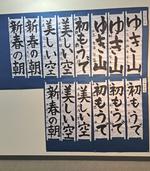 ゆき山
ゆき山
ゆき山
初もうで
美しい空
美しい空
新春の朝
新春の朝
初もうで
初もうで
初もうで
美しい空
美しい空
新春の朝